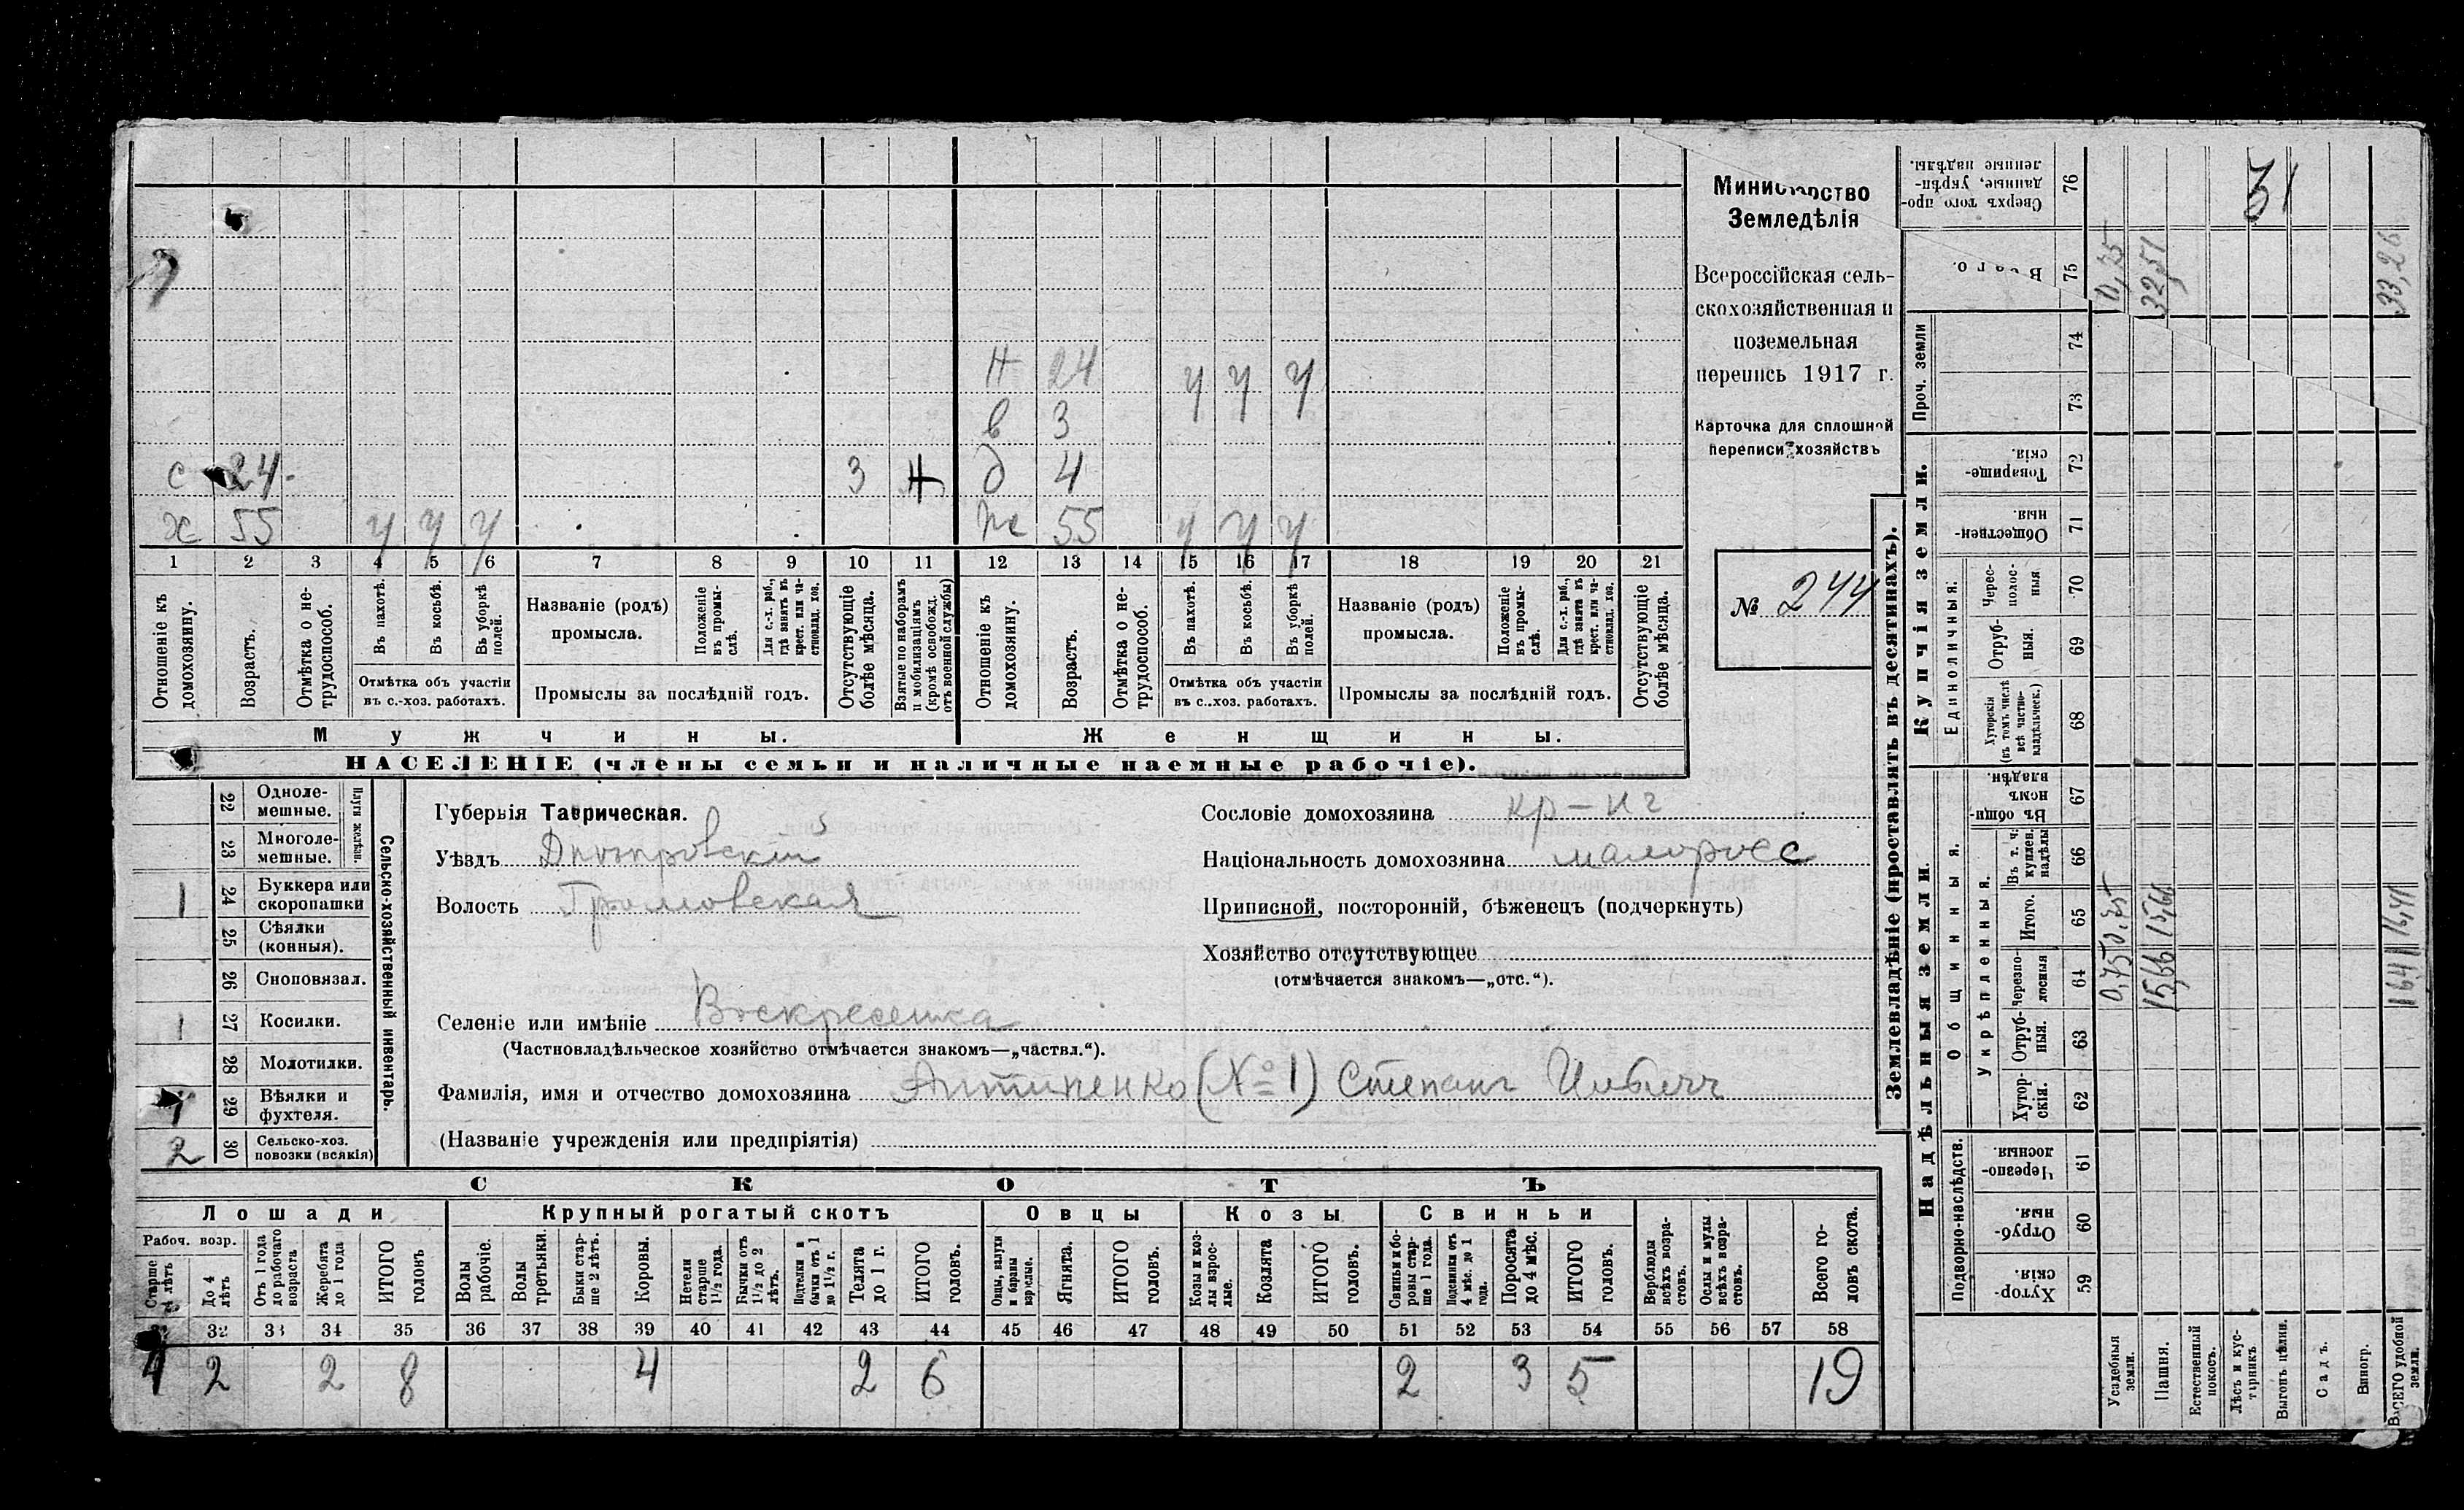 Министерство
Земледѣлія
Всероссійская сель-
скохозяйственная и
поземельная
перепись 1917 г.
Карточка для сплошной
переписи хозяйствъ
№ 244
Н 24 у у у
в 3
с 24 3 Н д 4
х 55 у у у ж 55 у у у
1 2 3 4 5 6 7 8 9 10 11 12 13 14 15 16 17 18 19 20 21
Отношеніе къ домохозяину.
Возрастъ.
Отмѣтка о не-трудоспособ.
Въ пахотѣ.
Въ косьбѣ.
Въ уборкѣ полей.
Отмѣтка объ участіи
въ с.-хоз. работахъ.
Названіе (родъ)
промысла.
Положеніе въ промы-слѣ.
Для с.-х. раб., гдѣ занятъ въ крест. или ча-стновлад. хоз.
Промыслы за послѣдній годъ.
Отсутствующіе болѣе мѣсяца.
Взятые по наборамъ и мобилизаціямъ (кромѣ освобожд. отъ военной службы)
Отношеніе къ домохозяину.
Возрастъ.
Отмѣтка о не-трудоспособ.
Въ пахотѣ.
Въ косьбѣ.
Въ уборкѣ полей.
Отмѣтка объ участіи
въ с.-хоз. работахъ.
Названіе (родъ)
промысла.
Положеніе въ промы-слѣ.
Для с.-х. раб., гдѣ занята въ крест. или ча-стновлад. хоз.
Промыслы за послѣдній годъ.
Отсутствующіе болѣе мѣсяца.
Мужчины.
Женщины.
НАСЕЛЕНІЕ (члены семьи и наличные наемные рабочіе).
Сельско-хозяйственный инвентарь.
Плуги желѣзн.
22 Одноле-мешные.
23 Многоле-мешные.
1 24 Буккера или скоропашки
25 Сѣялки (конныя).
26 Сноповязал.
1 27 Косилки.
28 Молотилки.
1 29 Вѣялки и фухтеля.
2 30 Сельско-хоз. повозки (всякія)
Губернія Таврическая.
Уѣздъ Днѣпровскій
Волость Громовская
Сословіе домохозяина кр-нъ
Національность домохозяина малоросс
Приписной, посторонній, бѣженецъ (подчеркнуть)
Хозяйство отсутствующее
(отмѣчается знакомъ—„отс.“).
Селеніе или имѣніе Воскресенка
(Частновладѣльческое хозяйство отмѣчается знакомъ—„частвл.“).
Фамилія, имя и отчество домохозяина Антипенко (№ 1) Степанъ Ильичъ
(Названіе учрежденія или предпріятія)
СКОТЪ
Лошади
Крупный рогатый скотъ
Овцы
Козы
Свиньи
Рабоч. возр.
Старше 4 лѣтъ
До 4 лѣтъ
Отъ 1 года до рабочаго возраста
Жеребята до 1 года
ИТОГО головъ
Волы рабочіе.
Волы третьяки.
Быки стар-ше 2 лѣтъ.
Коровы.
Нетели старше 1½ года.
Бычки отъ 1½ до 2 лѣтъ.
Подтелки и бычки отъ 1 до 1½ г.
Телята до 1 г.
ИТОГО головъ.
Овцы, валухи и бараны взрослые.
Ягнята.
ИТОГО головъ.
Козы и коз-лы взрос-лые.
Козлята
ИТОГО головъ.
Свиньи и бо-ровы стар-ше 1 года.
Подсвинки отъ 4 мѣс. до 1 года.
Поросята до 4 мѣс.
ИТОГО головъ.
Верблюды всѣхъ возра-стовъ.
Ослы и мулы всѣхъ возра-стовъ.
Всего го-ловъ скота.
32 33 34 35 36 37 38 39 40 41 42 43 44 45 46 47 48 49 50 51 52 53 54 55 56 57 58
4 2 2 8 4 2 6 2 3 5 19
Землевладѣніе (проставлять въ десятинахъ).
Надѣльныя земли.
Купчія земли.
Проч. земли
Подворно-наслѣдств.
Общинныя.
Укрѣпленныя.
Единоличныя:
Хутор-скія. 59
Отруб-ныя. 60
Черезпо-лосныя 61
Хутор-скія. 62
Отруб-ныя. 63
Черезпо-лосныя 64
Итого. 65
Въ т. ч. куплен. надѣлы 66
Въ общин-номъ владѣн. 67
Хуторскія (въ томъ числѣ всѣ частно-владѣльческ.) 68
Отруб-ныя. 69
Черес-полос-ныя 70
Обществен-ныя. 71
Товарище-скія. 72
73
74
Всего. 75
Сверхъ того про-данные, укрѣп-ленные надѣлы. 76
Усадебныя земли. 0,75 0,75 0,75
Пашня. 15,66 15,66 32,51
Естественный покосъ.
Лѣсъ и кус-тарникъ
Выгонъ цѣлин.
Садъ.
Виногр.
ВСЕГО удобной земли. 16,41 16,41 33,26
31